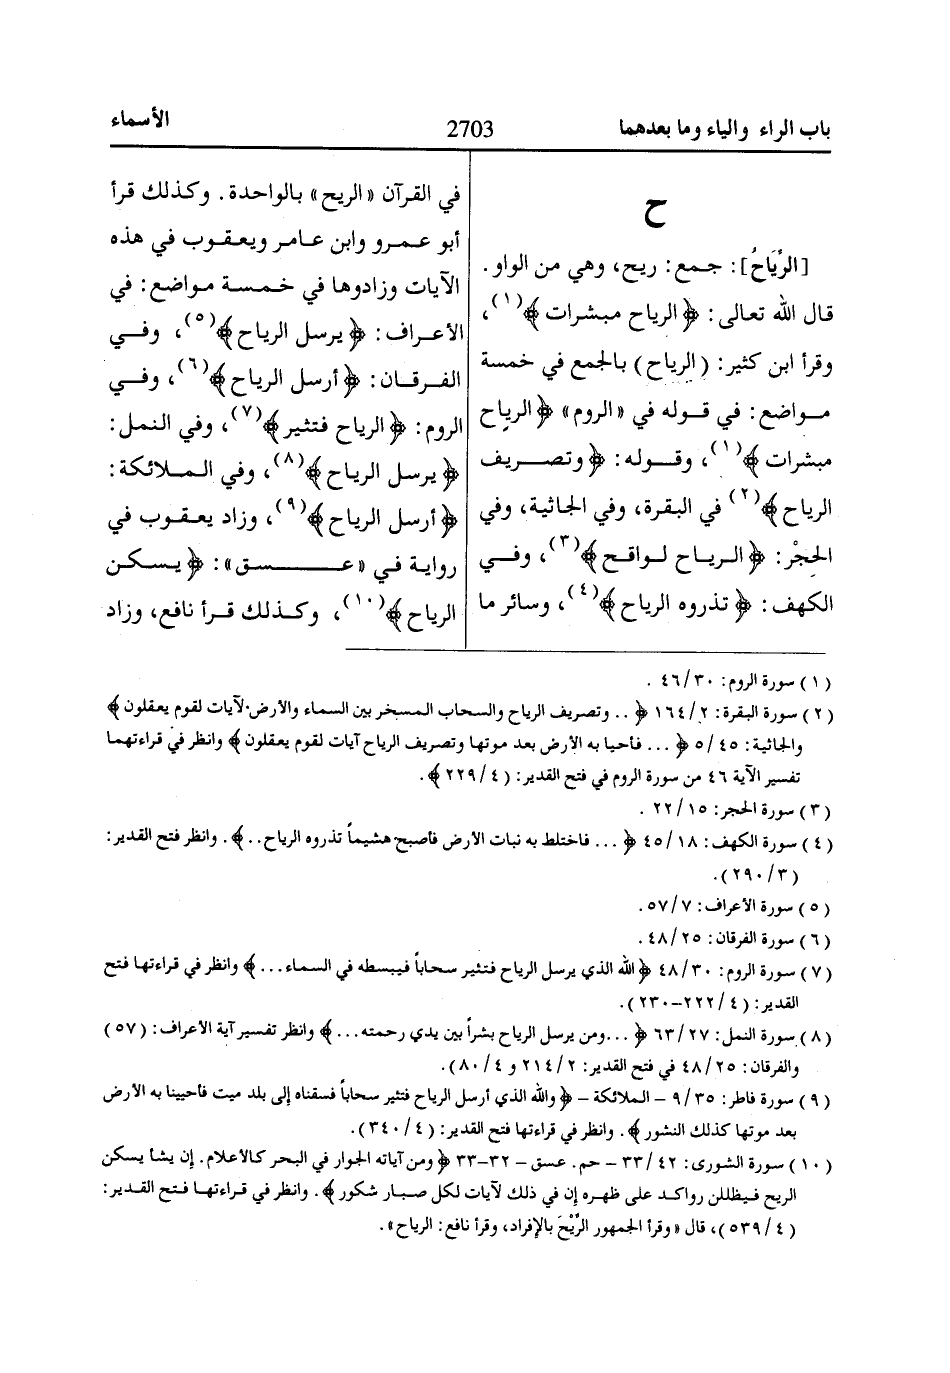 باب الراء والياء وما بعدهما
2703
الأسماء
ح
[الرِّيَاحُ]: جمع: ريح، وهي من الواو.
قال الله تعالى: ﴿الرياح مبشرات﴾(١)،
وقرأ ابن كثير: (الرياح) بالجمع في خمسة
مواضع: في قوله في «الروم» ﴿الرياح
مبشرات﴾(١)، وقوله: ﴿وتصريف
الرياح﴾(٢) في البقرة، وفي الجاثية، وفي
الحِجْر: ﴿الرياح لواقح﴾(٣)، وفي
الكهف: ﴿تذروه الرياح﴾(٤)، وسائر ما
في القرآن «الريح» بالواحدة. وكذلك قرأ
أبو عمرو وابن عامر ويعقوب في هذه
الآيات وزادوها في خمسة مواضع: في
الأعراف: ﴿يرسل الرياح﴾(٥)، وفي
الفرقان: ﴿أرسل الرياح﴾(٦)، وفي
الروم: ﴿الرياح فتثير﴾(٧)، وفي النمل:
﴿يرسل الرياح﴾(٨)، وفي الملائكة:
﴿أرسل الرياح﴾(٩)، وزاد يعقوب في
رواية في «عسق»: ﴿يسكن
الرياح﴾(١٠)، وكذلك قرأ نافع، وزاد
(١) سورة الروم: ٤٦/٣٠ .
(٢) سورة البقرة: ١٦٤/٢ ﴿.. وتصريف الرياح والسحاب المسخر بين السماء والأرض لآيات لقوم يعقلون﴾
والجاثية: ٥/٤٥ ﴿... فأحيا به الأرض بعد موتها وتصريف الرياح آيات لقوم يعقلون﴾ وانظر في قراءتهما
تفسير الآية ٤٦ من سورة الروم في فتح القدير: (٢٢٩/٤﴾.
(٣) سورة الحجر: ٢٢/١٥ .
(٤) سورة الكهف: ٤٥/١٨ ﴿... فاختلط به نبات الأرض فأصبح هشيماً تذروه الرياح..﴾. وانظر فتح القدير:
(٢٩٠/٣).
(٥) سورة الأعراف: ٥٧/٧.
(٦) سورة الفرقان: ٤٨/٢٥.
(٧) سورة الروم: ٤٨/٣٠ ﴿الله الذي يرسل الرياح فتثير سحاباً فيبسطه في السماء...﴾ وانظر في قراءتها فتح
القدير: (٢٢٢/٤-٢٣٠).
(٨) سورة النمل: ٦٣/٢٧ ﴿...ومن يرسل الرياح بشراً بين يدي رحمته...﴾ وانظر تفسير آية الأعراف: (٥٧)
والفرقان: ٤٨/٢٥ في فتح القدير: ٢١٤/٢ و ٨٠/٤).
(٩) سورة فاطر: ٩/٣٥ – الملائكة – ﴿والله الذي أرسل الرياح فتثير سحاباً فسقناه إلى بلد ميت فأحيينا به الأرض
بعد موتها كذلك النشور﴾. وانظر في قراءتها فتح القدير: (٣٤٠/٤).
(١٠) سورة الشورى: ٣٣/٤٢ – حم. عسق – ٣٢-٣٣ ﴿ومن آياته الجوار في البحر كالأعلام. إن يشأ يسكن
الريح فيظللن رواكد على ظهره إن في ذلك لآيات لكل صبار شكور﴾. وانظر في قراءتها فتح القدير:
(٥٣٩/٤)، قال «وقرأ الجمهور الرِّيْحَ بالإفراد، وقرأ نافع: الرياح».